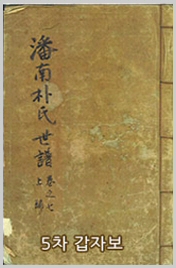 潘南朴氏世譜
卷之七
上編
5차 갑자보